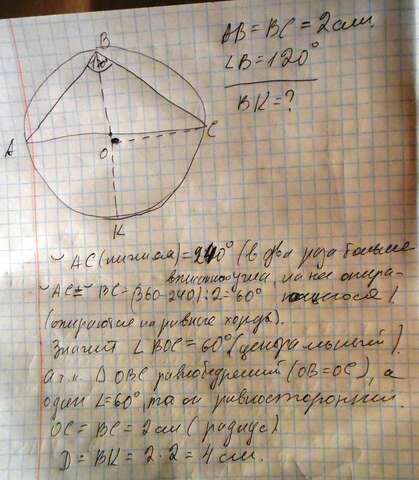 AB = BC = 2см.
∠B = 120°
BK = ?
B
120°
A
O
C
K
◡ AC (нижняя) = 240° (в два раза больше
вписанного угла, на нее опира-
ющегося).
◡ AC = ◡ BC = (360-240):2 = 60°
(опираются на равные хорды).
Значит ∠ BOC = 60° (центральный).
а т.к. Δ OBC равнобедренный (OB=OC), а
один ∠=60°, то он равносторонний.
OC = BC = 2см (радиус)
D = BK = 2·2 = 4 см.